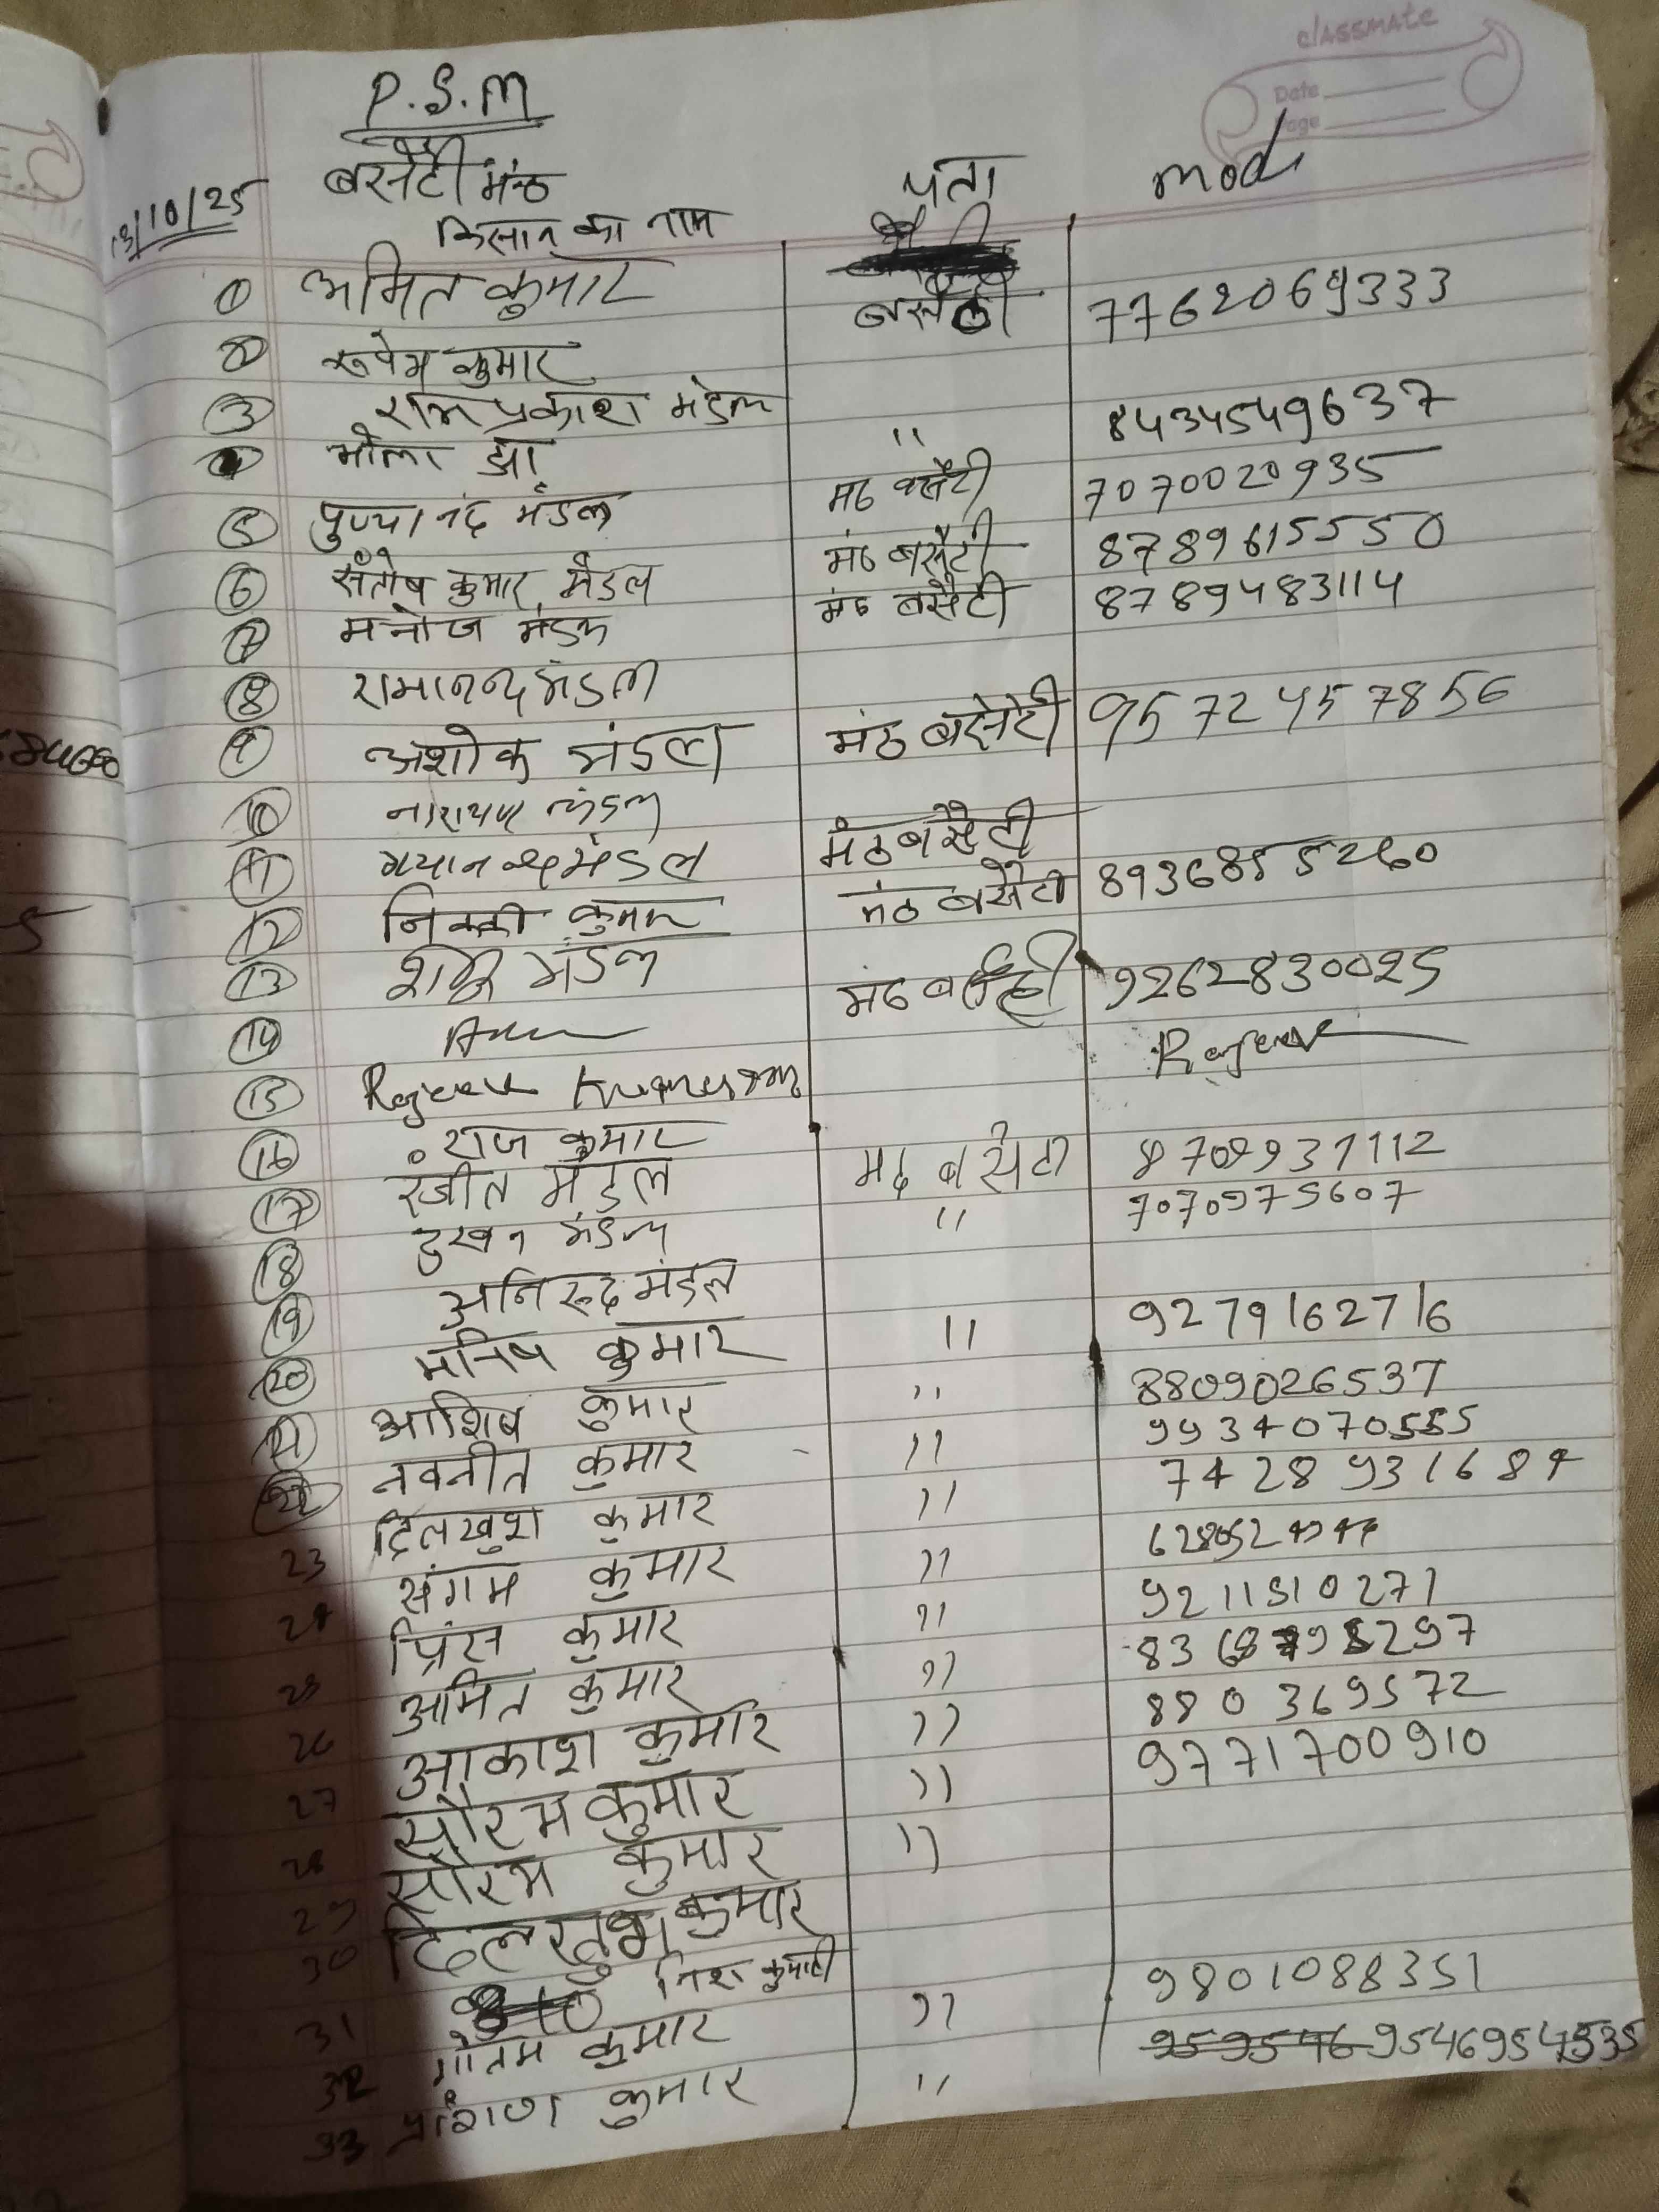 classmate
Date
Page
P.S.M
बसैटी मंठ
13/10/25 किसान का नाम पता mob
1 अमित कुमार बसैटी 7762069333
2 रूपेश कुमार
3 राम प्रकाश मंडल " 8434549637
4 भोला झा मठ बसैटी 7070020935
5 पुण्यानंद मंडल मंठ बसैटी 8789615550
6 संतोष कुमार मंडल मंठ बसैटी 8789483114
7 मनोज मंडल
8 रामानन्द मंडल
9 अशोक मंडल मंठ बसेटी 95724457856
10 नारायण मंडल
11 मंडल मंठ बसैटी
12 निक्की कुमार मंठ बसैटी 8936855260
13 मंडल मंठ 9262830025
14
15 Rajeev Kumar Rajeev
16 राज कुमार मठ बसैटी 8709937112
17 रंजीत मंडल " 7070975607
18 दुखन मंडल
19 अनिरुद मंडल
20 मनिष कुमार " 9279162716
21 आशिष कुमार " 8809026537
22 नवनीत कुमार " 9934070555
23 दिलखुश कुमार " 7428931684
24 संगम कुमार "
25 प्रिंस कुमार " 9211510271
26 अमित कुमार "
27 आकाश कुमार " 880369572
28 सौरभ कुमार " 9771700910
29 सौरभ कुमार "
30 दिलखुश कुमार
31 निशा कुमारी
32 गौतम कुमार " 9801088351
33 कुमार " 959546 95469547535